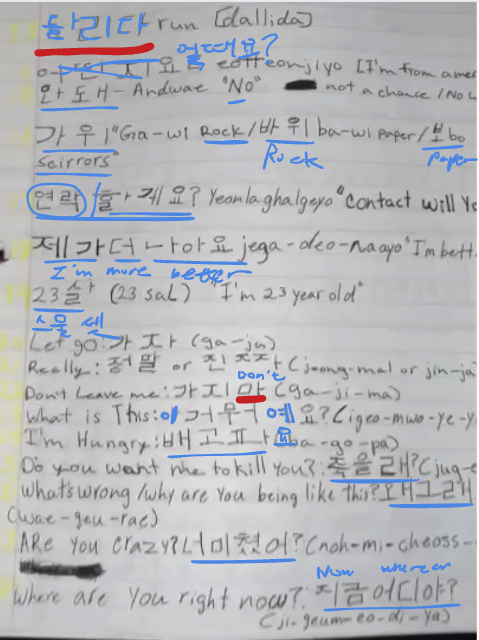 달리다 run [dallida]
어때요?
어떤지요 eotteonjiyo [I'm from amer
안 돼 - Andwae "No" not a chance / No w
가위 "Ga-wi Rock / 바위 ba-wi paper / 보 bo
scirrors" Rock Paper
연락 할게요? Yeonlaghalgeyo "Contact will Yo
제가 더 나아요 jega-deo-naayo "I'm bett
I'm more better
23살 (23 sal) "I'm 23 year old"
스물 셋
Let go: 가자 (ga-ja)
Really: 정말 or 진짜 (jeong-mal or jin-ja
Don't
Don't Leave me: 가지마 (ga-ji-ma)
What is This: 이거 무어예요? (igeo-mwo-ye-y
I'm Hungry: 배고파요 (ba-go-pa)
Do you want me to kill you?: 죽을래? (jug-e
What's wrong / why are you being like this? 왜그래
(wae-geu-rae)
ARe you crazy? 너미쳤어? (noh-mi-cheoss-
Now where are
Where are you right now?: 지금어디야?
(ji-geum-eo-di-ya)